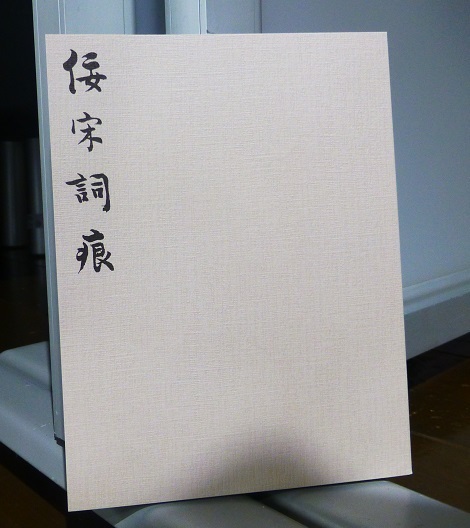 佞宋詞痕